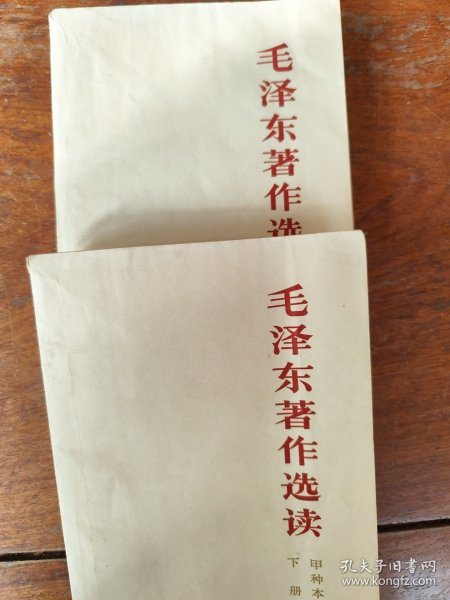 毛泽东著作选
毛泽东著作选读
甲种本
下册
孔夫子旧书网
kongfz.com